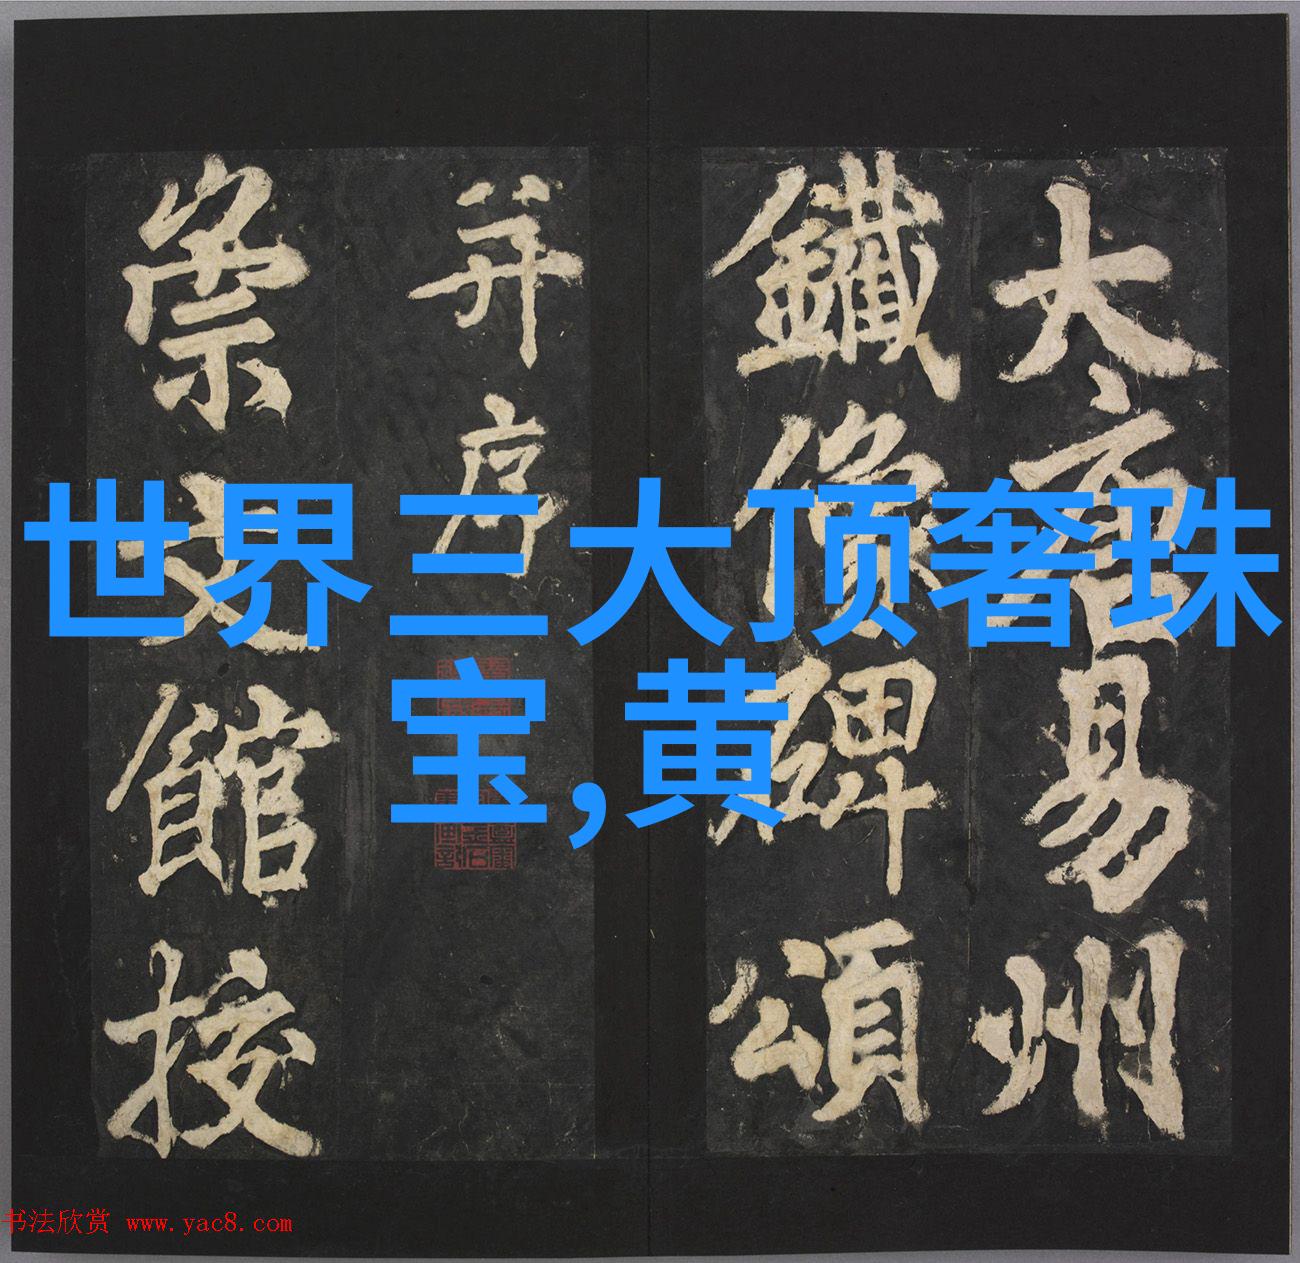 世界三大顶奢珠
宝,黄
大唐易州
鐵像碑頌
并序
崇文館挍
书法欣赏 www.yac8.com